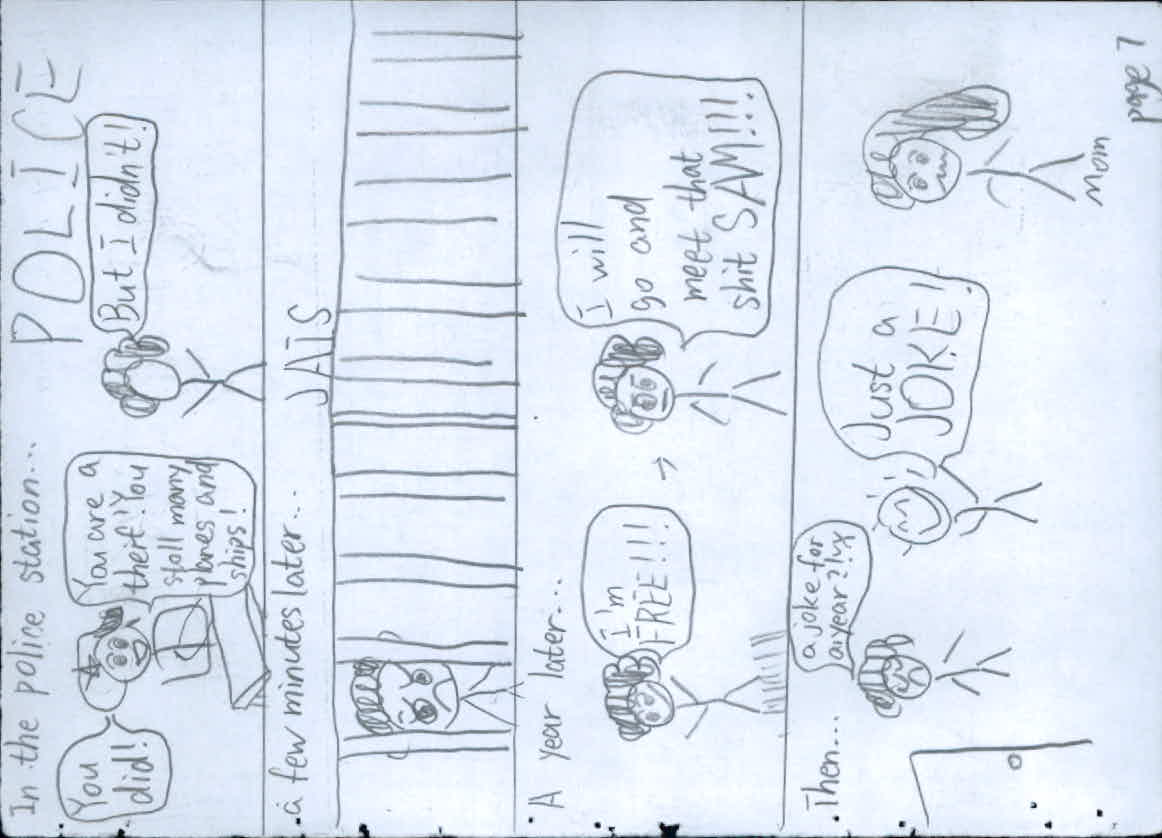 In the police station...
POLICE
You
did!
You are a
theif! You
stoll many
planes and
ships!
But I didn't!
a few minutes later...
JAIS
A year later...
I'm
FREE!!!
I will
go and
meet that
shit SAM!!!
Then...
a joke for
a year?!
Just a
JOKE!
Mom
page 7